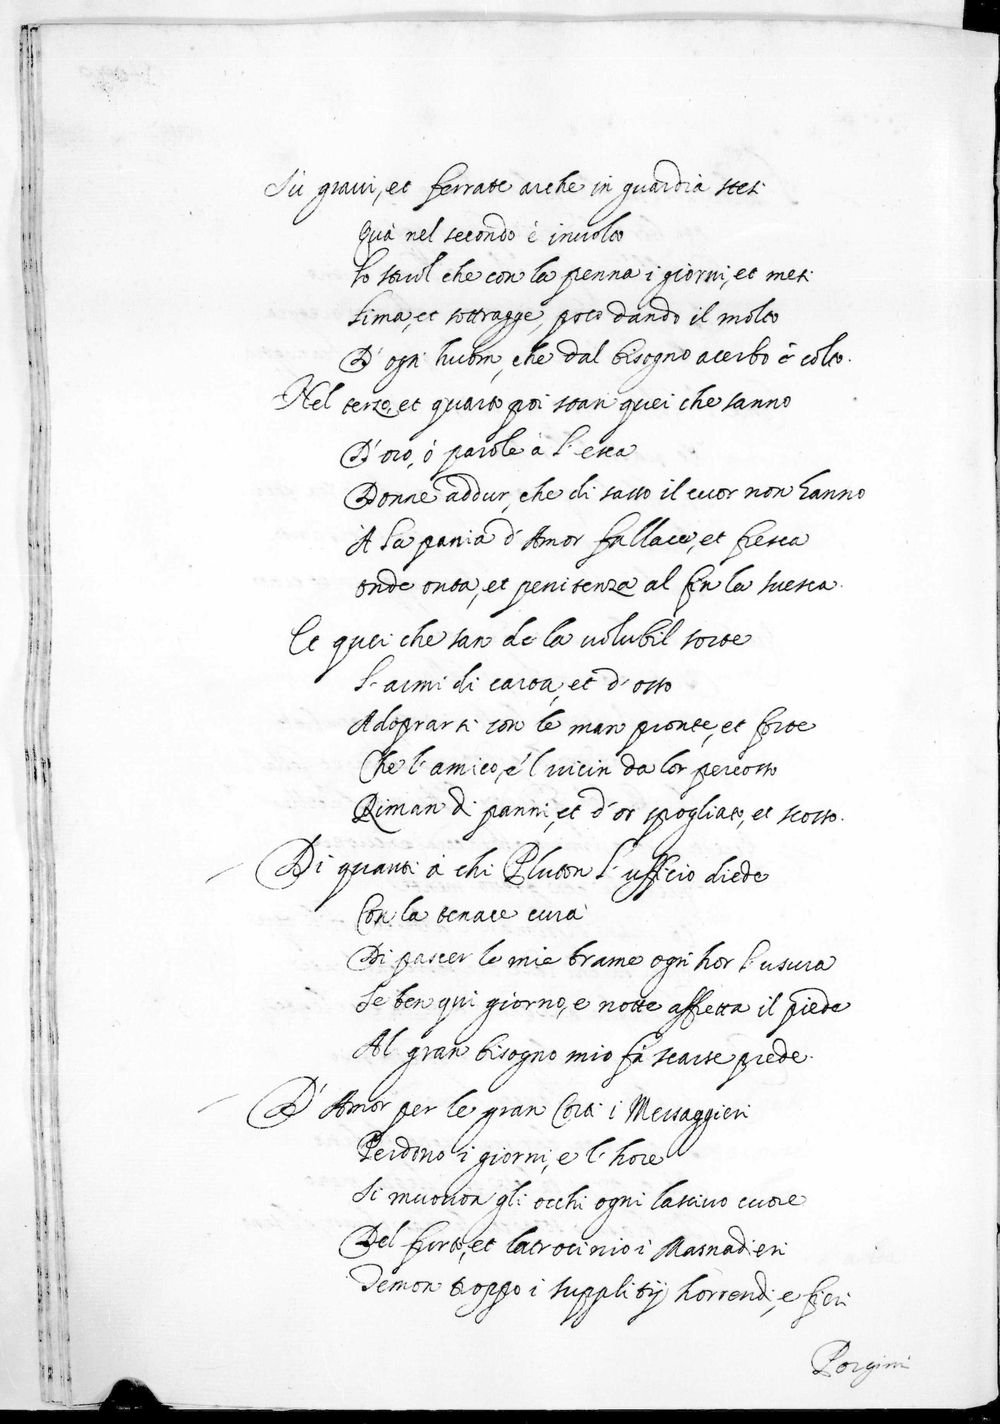 Sù graui, et ferrate arche in guardia stesi
Quà nel secondo è inuolto
Lo stuol che con la penna i giorni, et mesi
Lima, et sottragge, poco dando il molto
D' ogni huom, che dal bisogno acerbo è colto.
Nel terzo, et quarto poi stan quei che sanno
D' oro, ò parole à l' esca
Donne addur, che di sasso il cuor non hanno
A la pania d' Amor fallace, et fresca
onde onta, et penitenza al fin la suesca.
Et quei che san de la volubil sorte
L' armi di carta, et d' osso
Adoprarsi con le man pronte, et forte
Che l' amico, e 'l vicin da lor percosso
Riman di panni, et d' or spogliato, et scosso.
Di quanti à chi Pluton l' ufficio diede
Con la tenace cura
Di pascer le mie brame ogni hor l' usura
Se ben qui giorno, e notte affretta il piede
Al gran bisogno mio fà scarse prede.
D' Amor per le gran Corti i Messaggieri
Perdono i giorni, e l' hore
Si muouon gli occhi ogni lasciuo cuore
Del furto, et latrocinio i Masnadieri
Temon troppo i supplitij horrendi, e fieri
Porgini